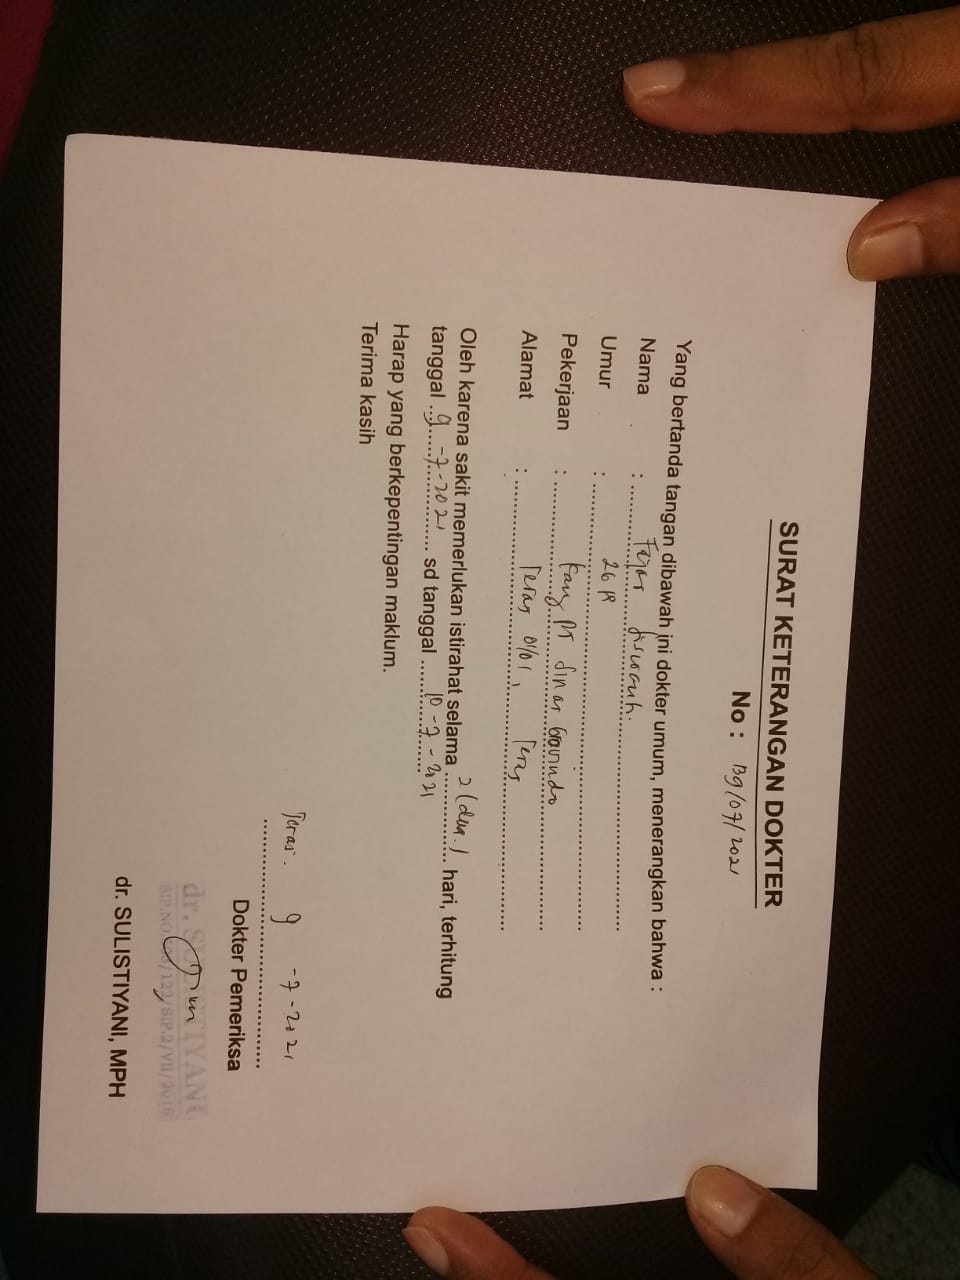 SURAT KETERANGAN DOKTER
No : 139/07/2021
Yang bertanda tangan dibawah ini dokter umum, menerangkan bahwa :
Nama : Fajar
Umur : 26
Pekerjaan : PT Sinar
Alamat : Teras 01/01, Teras
Oleh karena sakit memerlukan istirahat selama 2 (dua) hari, terhitung
tanggal 9-7-2021 sd tanggal 10-7-2021
Harap yang berkepentingan maklum.
Terima kasih
Teras. 9-7-2021
Dokter Pemeriksa
dr. SULISTIYANI
dr. SULISTIYANI, MPH